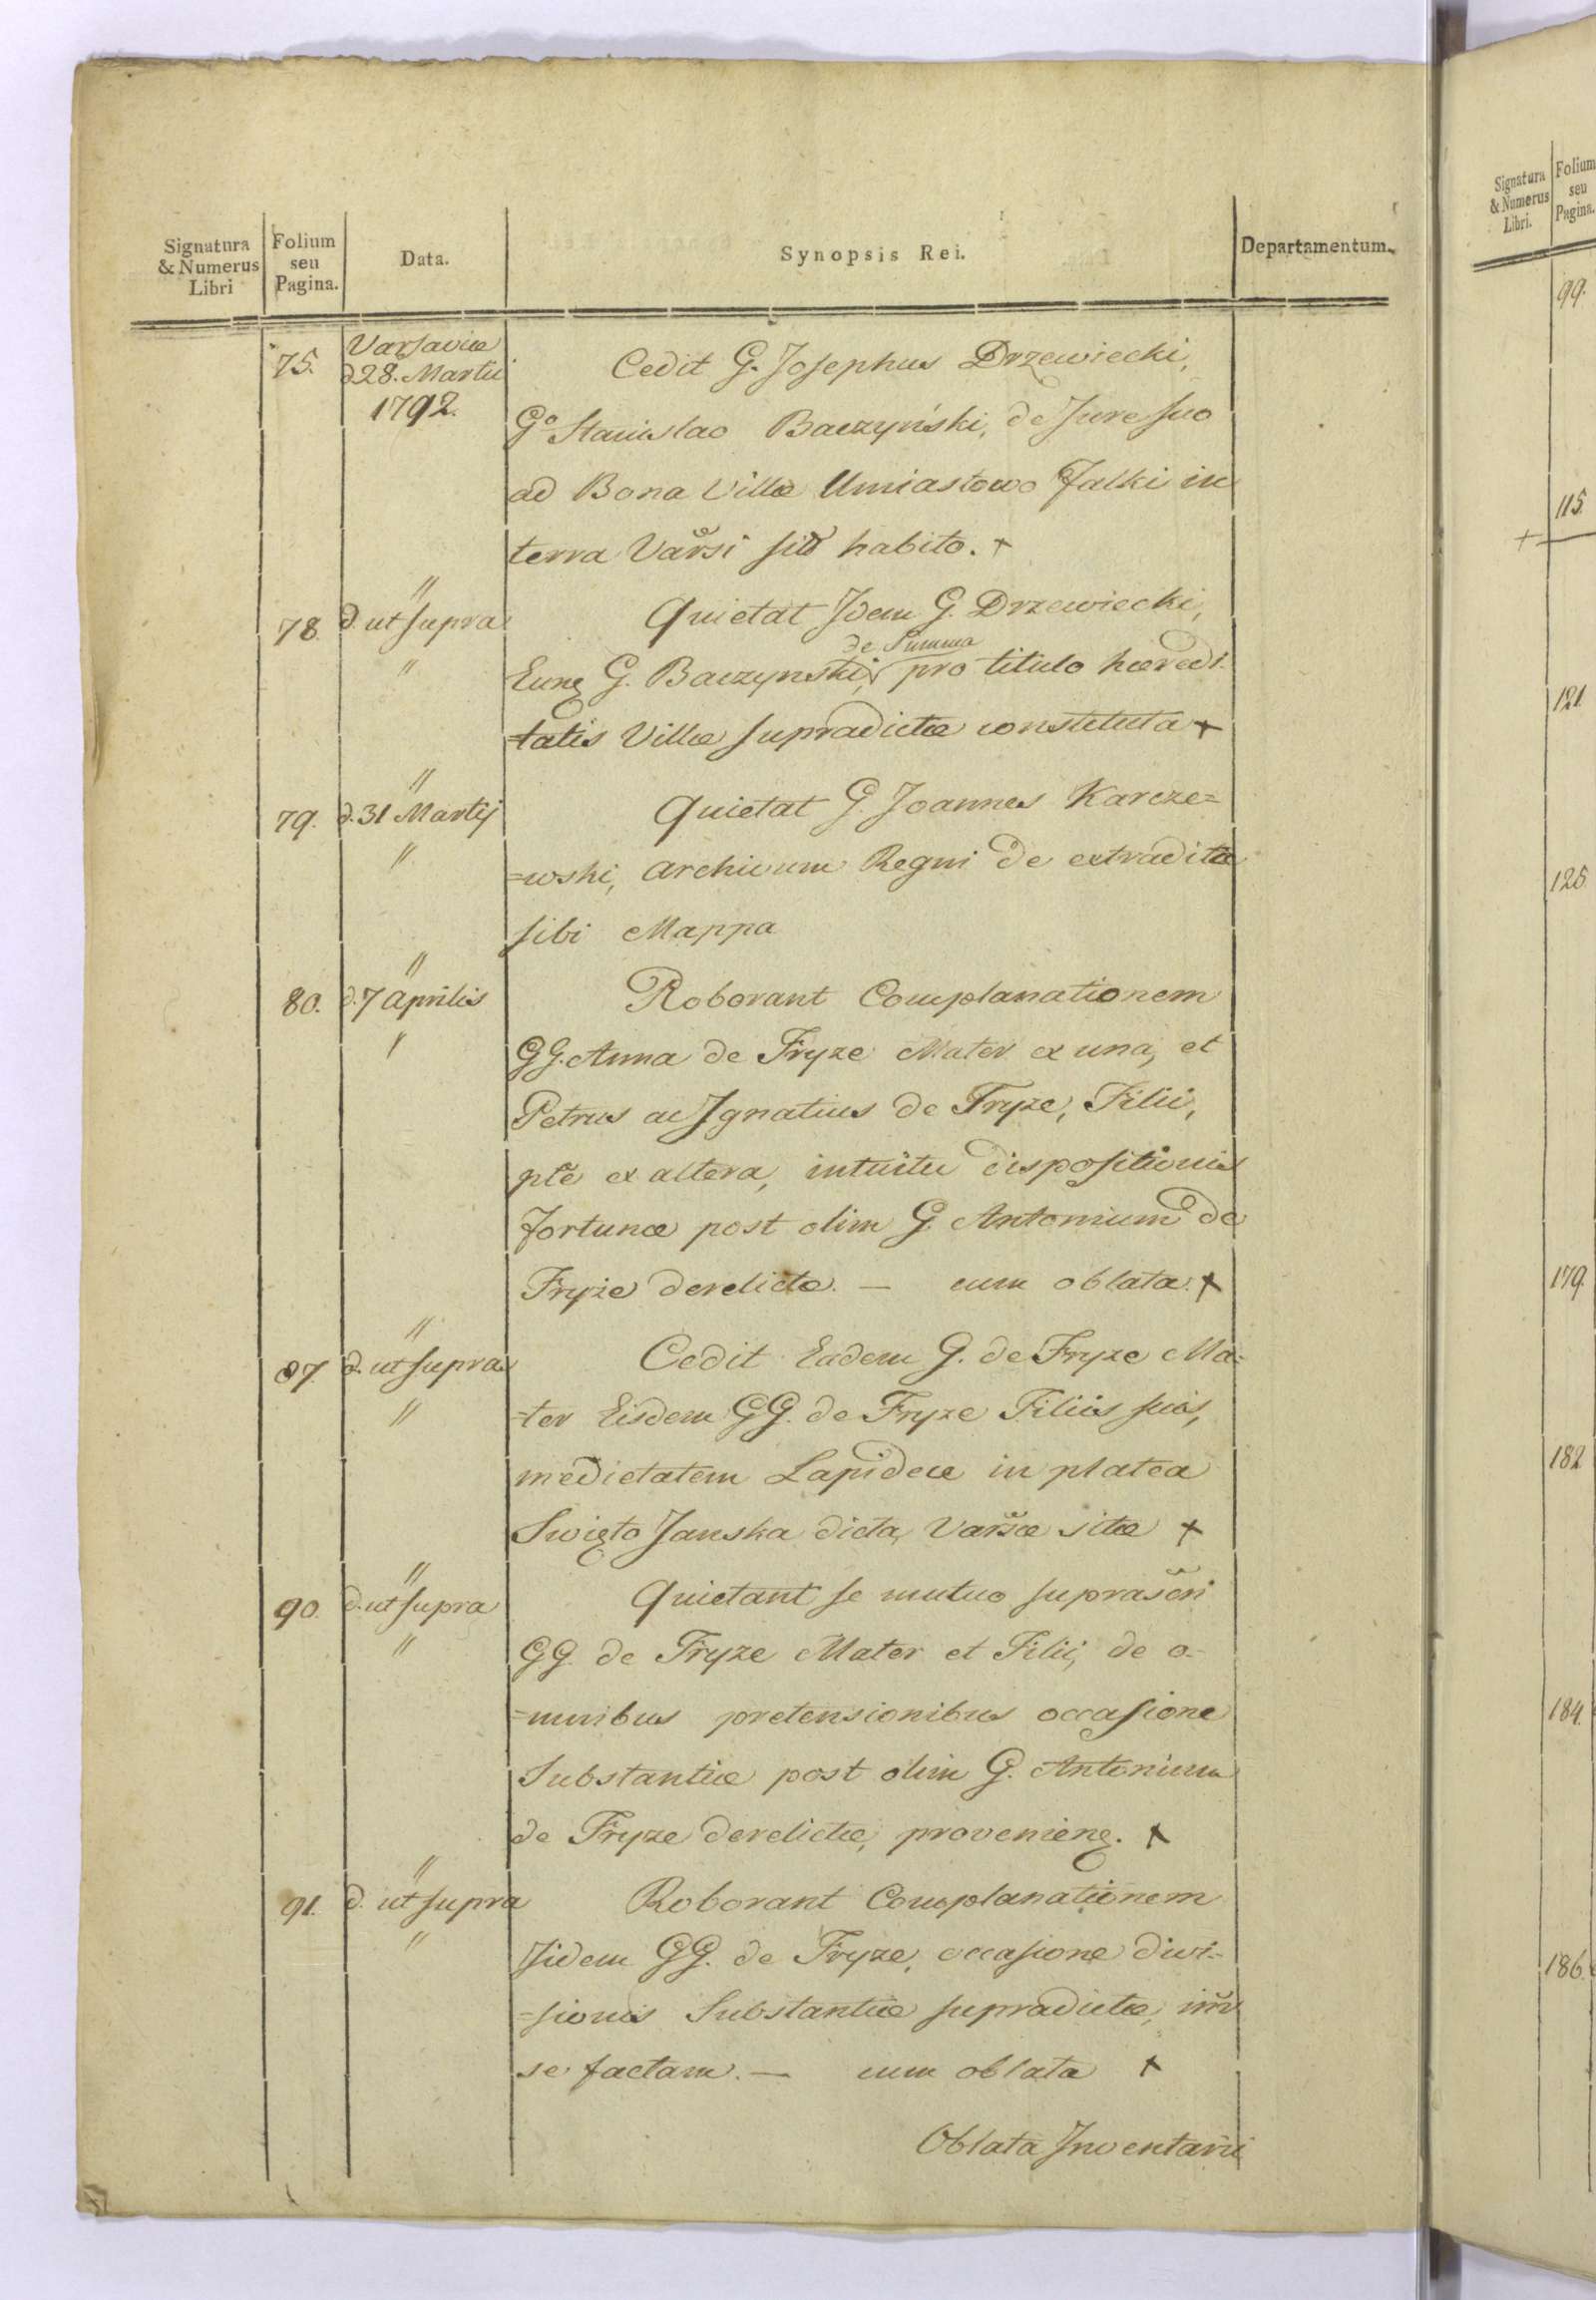 Signatura & Numerus Libri
Folium seu Pagina.
Data.
Synopsis Rei.
Departamentum.
75. Varsaviæ d 28. Martii 1792.
Cedit G. Josephus Drzewiecki,
Gº Stanislao Baczyński, de Jure suo
ad Bona Villæ Umiastowo Falki in
terra Varsi sitæ habito. +
78. d. ut supra
Quietat Idem G. Drzewiecki,
de Summa
Eunq G. Baczynski, pro titulo hæredi-
=tatis Villæ supradictæ constituta +
79. d. 31 Martij
Quietat G. Joannes Karcze=
=wski, Archivum Regni de extradita
sibi Mappa
80. d. 7 Aprilis
Roborant Complanationem
GG. Anna de Fryze Mater ex una, et
Petrus ac Ignatius de Fryze, Filii,
pte ex altera, intuitu dispositionis
fortunæ post olim G. Antonium de
Fryze derelictæ. — cum oblata. +
87 d. ut supra
Cedit Eadem G. de Fryze Ma=
=ter Eisdem GG. de Fryze Filiis suis,
medietatem Lapideæ in platea
Swięto Janska dicta, Varsæ sitæ +
90. d. ut supra
Quietant se mutuo suprascri
GG. de Fryze Mater et Filii, de o-
=mnibus pretensionibus occasione
Substantiæ post olim G. Antonium
de Fryze derelictæ, provenienq. +
91. d. ut supra
Roborant Complanationem
Iidem GG. de Fryze, occasione divi-
=sionis Substantiæ supradictæ, intr
se factam. — cum oblata +
Oblata Inventarii
Signatura & Numerus Libri.
Folium seu Pagina.
99.
115.
+
121.
125
179.
182
184.
186.